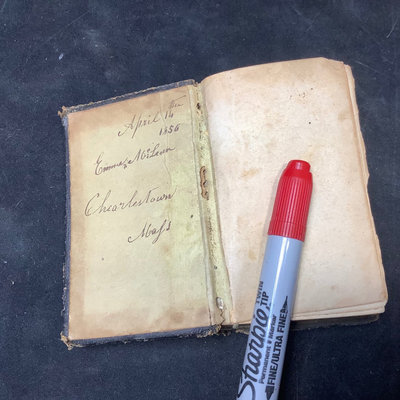 April 14th
1856
Emma McLean
Charlestown
Mass
Sharpie
Permanent Marker
TWIN TIP
FINE/ULTRA FINE